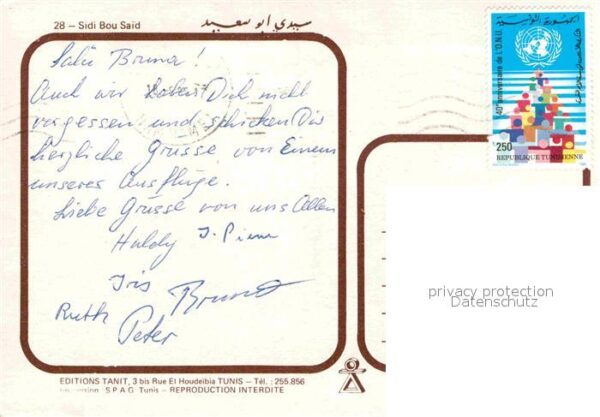 28 – Sidi Bou Saïd
سيدي ابو سعيد
Salü Bruna!
Auch wir haben Dich nicht
vergessen und schicken Dir
herzliche Grüsse von Einem
unseres Ausflüge.
Liebe Grüsse von uns Allen
Huldy J. Pierre
Iris Bruno
Ruth Peter
EDITIONS TANIT, 3 bis Rue El Houdeibia TUNIS – Tél. : 255.856
S.P.A.G. Tunis – REPRODUCTION INTERDITE
الجمهورية التونسية
40e anniversaire de L'O.N.U.
250
REPUBLIQUE TUNISIENNE
privacy protection
Datenschutz